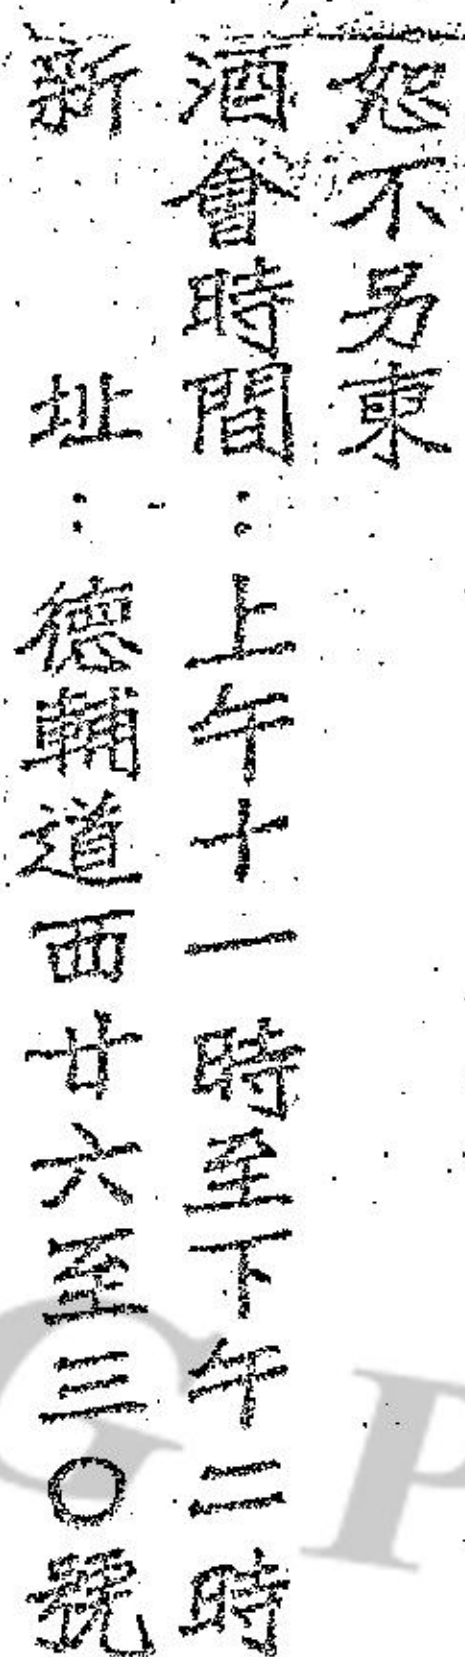 恕不另柬
酒會時間：上午十一時至下午二時
新址：德輔道西廿六至三〇號